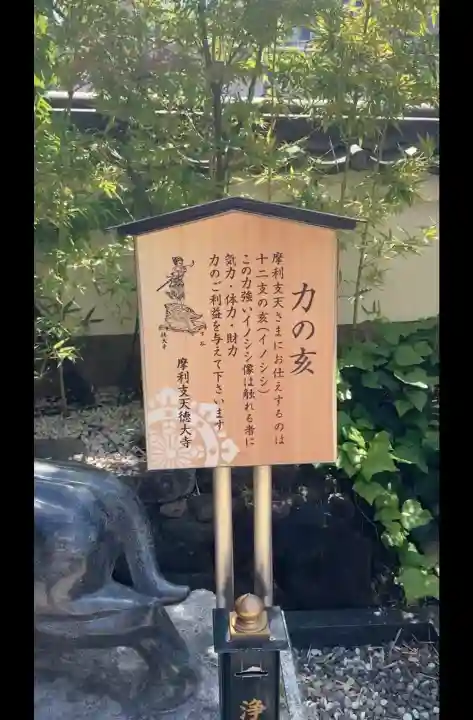 力の亥
摩利支天さまにお仕えするのは
十二支の亥(イノシシ)
この力強いイノシシ像は触れる者に
気力・体力・財力
力のご利益を与えて下さいます
摩利支天徳大寺
浄